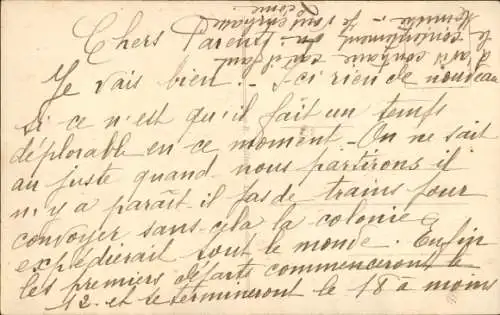 Chers Parents
Je vais bien. - Ici rien de nouveau
si ce n'est qu'il fait un temps
déplorable en ce moment. On ne sait
au juste quand nous partirons il
n'y a paraît-il pas de trains pour
convoyer sans cela la colonie
expédierait tout le monde. Enfin
les premiers départs commenceront le
12 et se termineront le 18 à moins
d'avis contraire